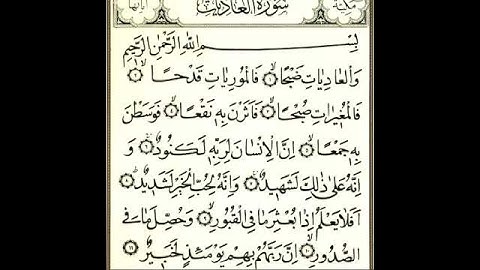 سورة العاديات مكية آياتها
بِسْمِ اللهِ الرَّحْمٰنِ الرَّحِيمِ
وَالْعَادِيَاتِ ضَبْحًا ۝١ فَالْمُورِيَاتِ قَدْحًا ۝٢
فَالْمُغِيرَاتِ صُبْحًا ۝٣ فَاَثَرْنَ بِهِ نَقْعًا ۝٤ فَوَسَطْنَ
بِهِ جَمْعًا ۝٥ اِنَّ الْاِنْسَانَ لِرَبِّهِ لَكَنُودٌ ۝٦ وَ
اِنَّهُ عَلٰى ذٰلِكَ لَشَهِيدٌ ۝٧ وَاِنَّهُ لِحُبِّ الْخَيْرِ لَشَدِيدٌ ۝٨
اَفَلَا يَعْلَمُ اِذَا بُعْثِرَ مَا فِي الْقُبُورِ ۝٩ وَحُصِّلَ مَا فِي
الصُّدُورِ ۝١٠ اِنَّ رَبَّهُمْ بِهِمْ يَوْمَئِذٍ لَخَبِيرٌ ۝١١